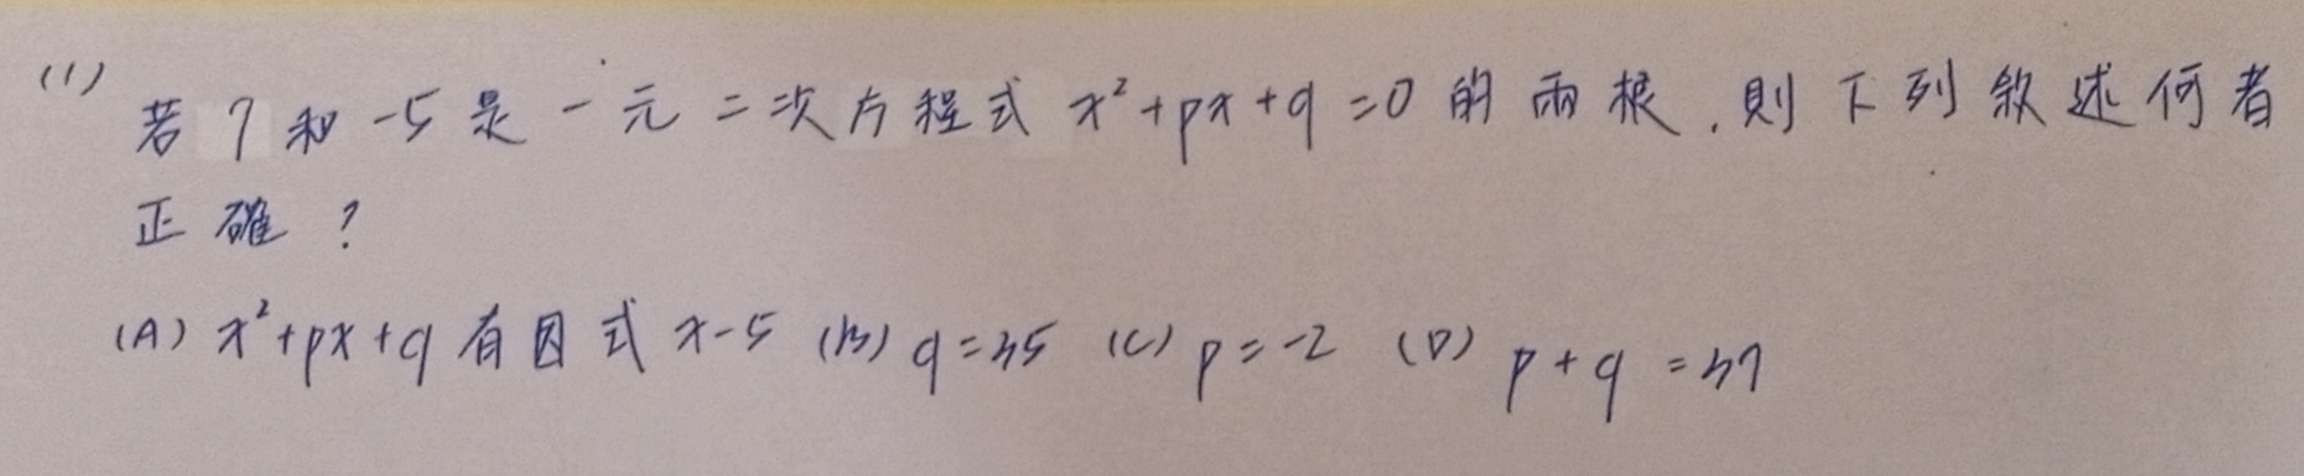 (1) 若 7 和 -5 是 一 元 二 次 方 程 式 x²+px+q=0 的 兩 根，則 下 列 敘 述 何 者
正 確 ？
(A) x²+px+q 有 因 式 x-5 (B) q=35 (C) p=-2 (D) p+q=37